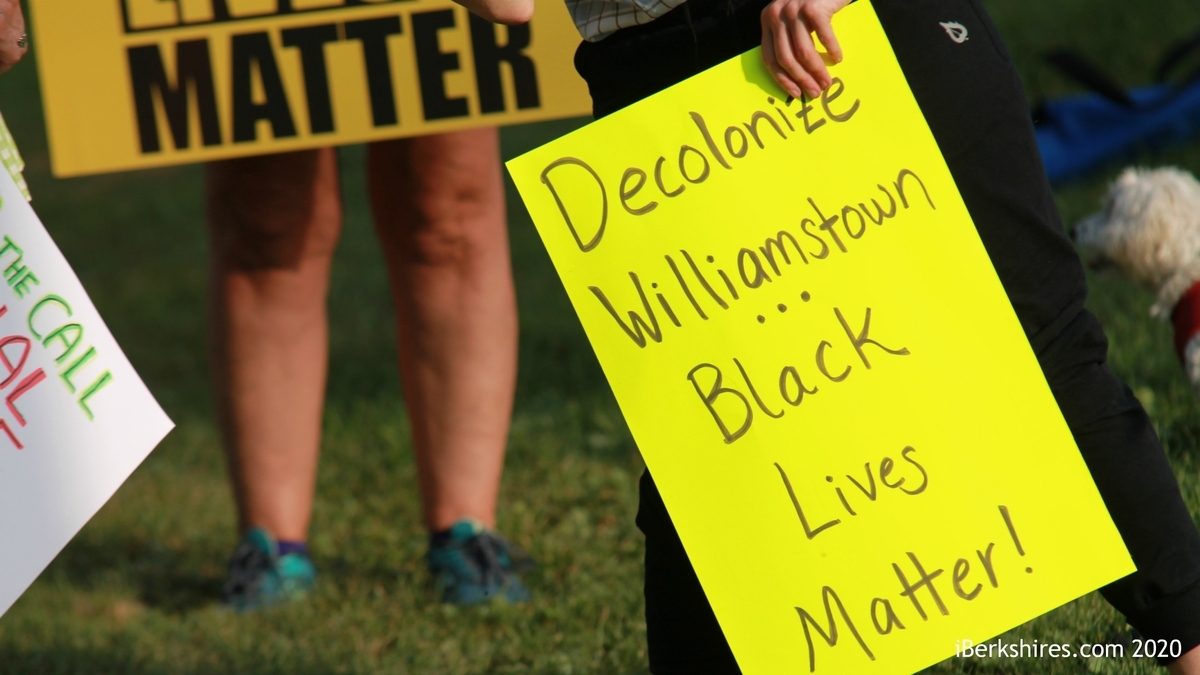 MATTER
THE CALL
Decolonize
Williamstown
...
Black
Lives
Matter!
iBerkshires.com 2020